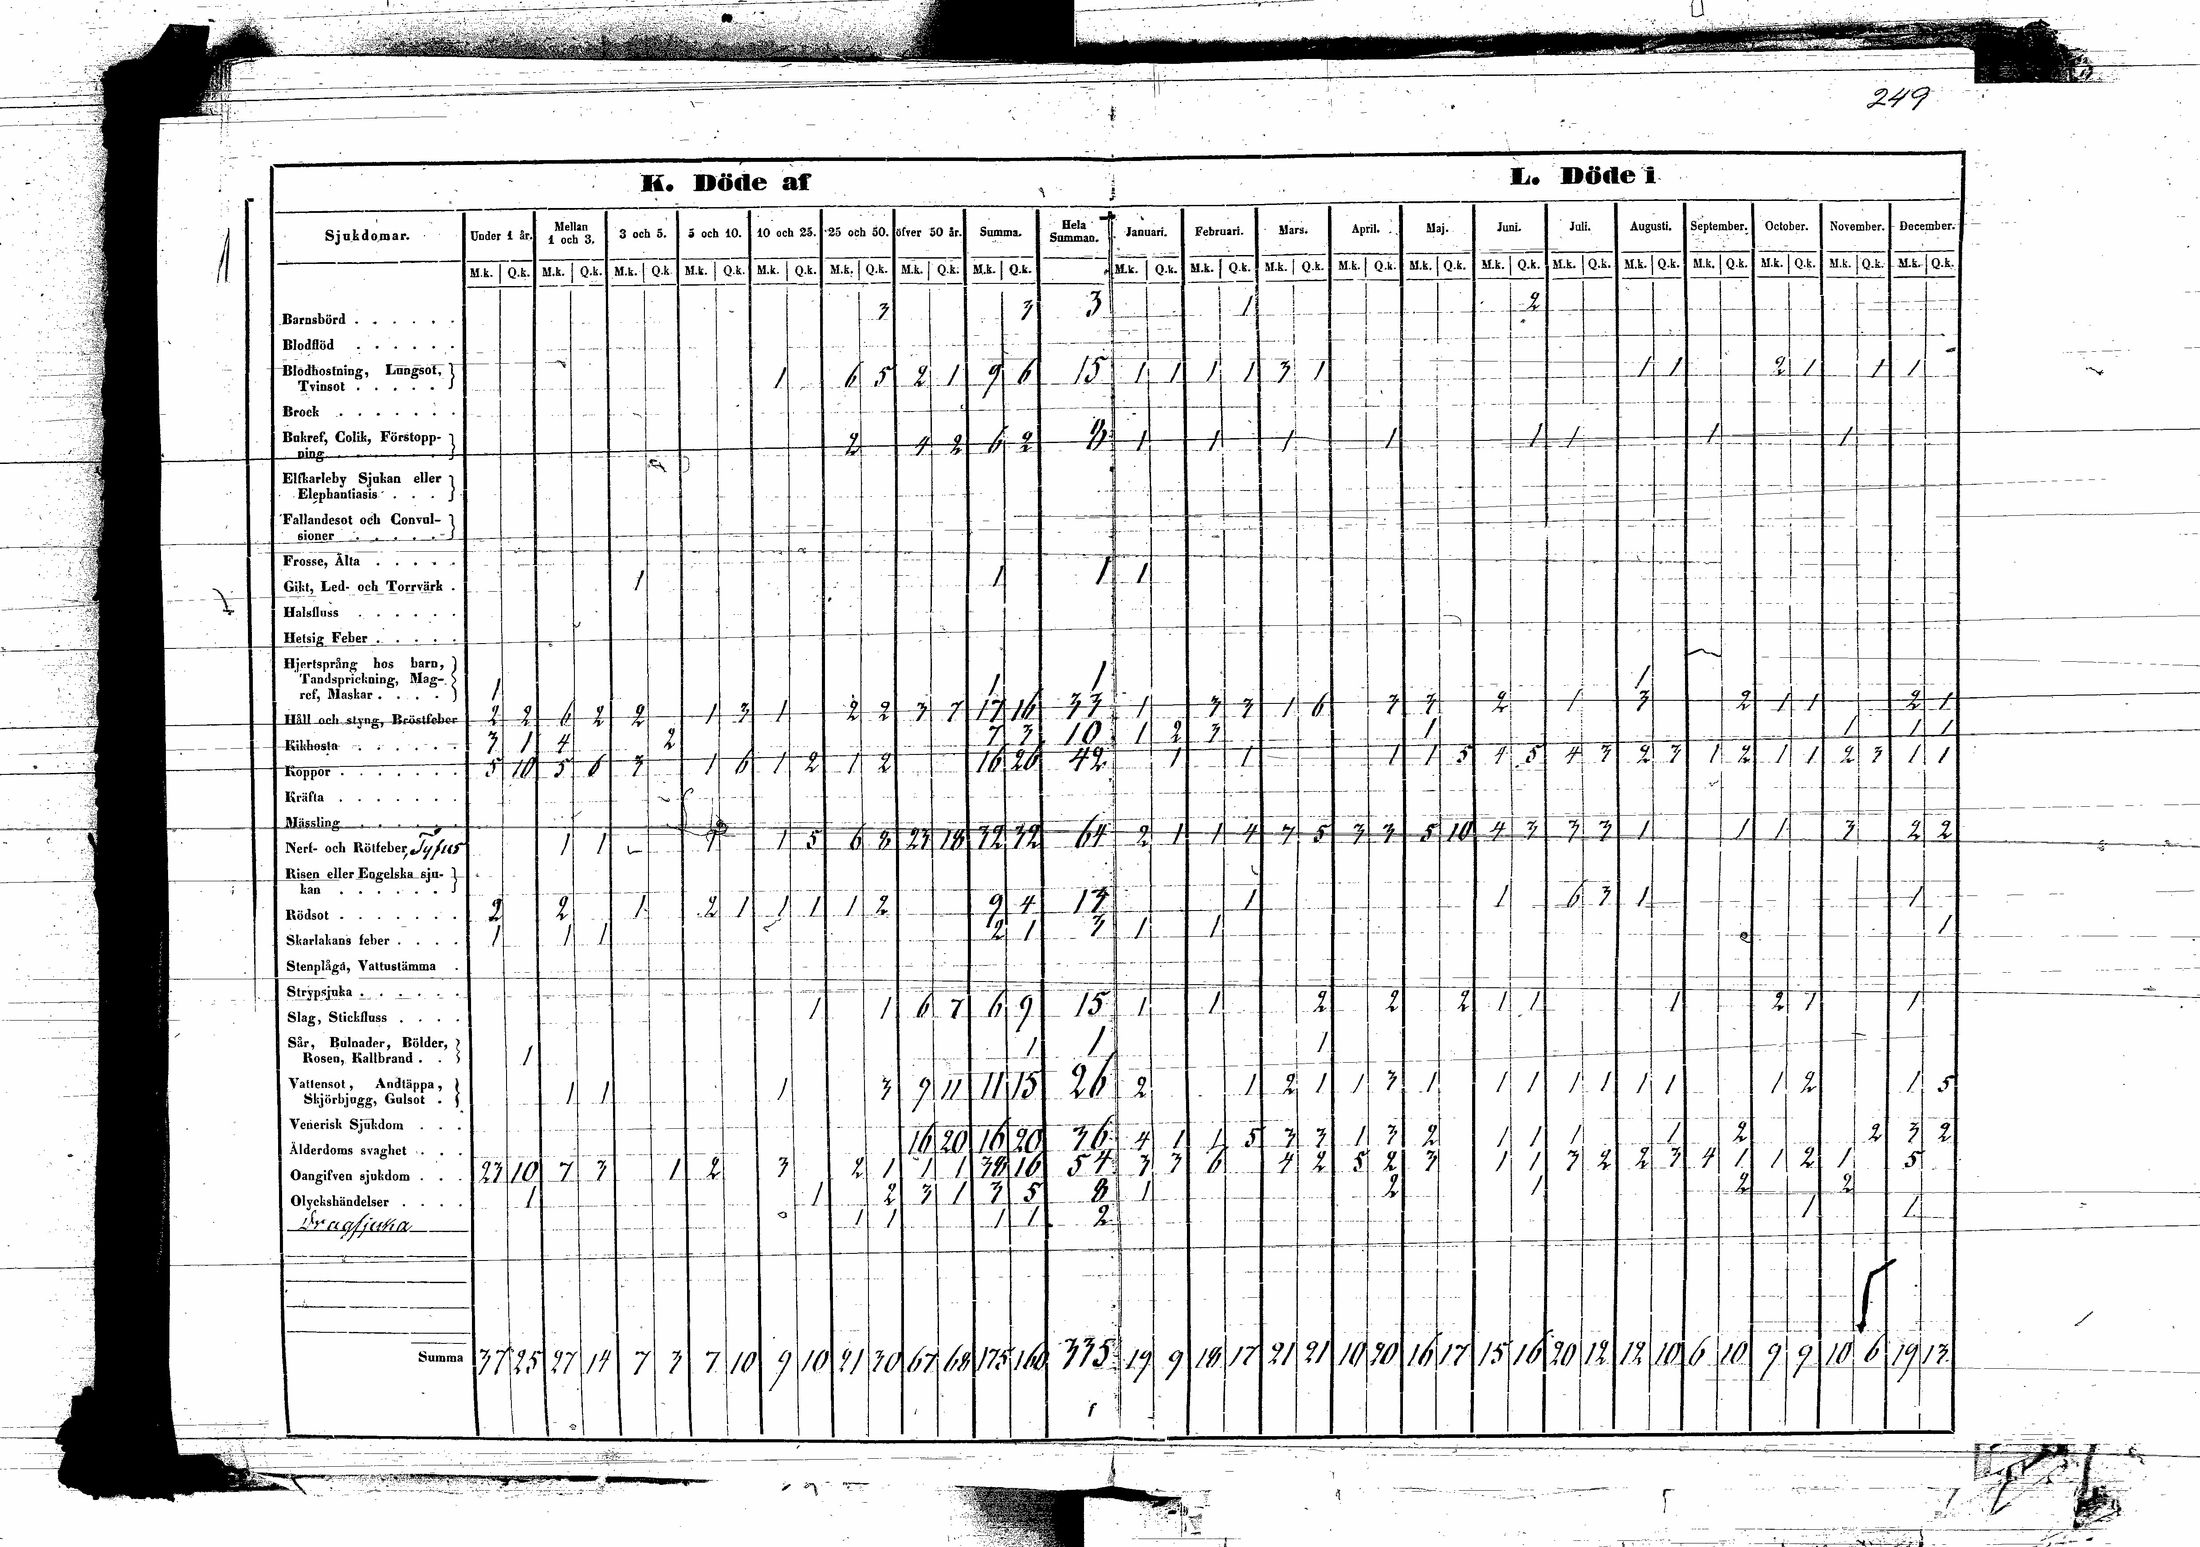 249
K. Döde af L. Döde i
Sjukdomar. Under 1 år. Mellan 1 och 3. 3 och 5. 5 och 10. 10 och 25. 25 och 50. öfver 50 år. Summa. Hela Summan. Januari. Februari. Mars. April. Maj. Juni. Juli. Augusti. September. October. November. December.
M.k. Q.k. M.k. Q.k. M.k. Q.k. M.k. Q.k. M.k. Q.k. M.k. Q.k. M.k. Q.k. M.k. Q.k. M.k. Q.k. M.k. Q.k. M.k. Q.k. M.k. Q.k. M.k. Q.k. M.k. Q.k. M.k. Q.k. M.k. Q.k. M.k. Q.k. M.k. Q.k. M.k. Q.k. M.k. Q.k.
Barnsbörd . . . . . . 3 3 3 1 2
Blodflöd . . . . . .
Blodhostning, Lungsot,
Tvinsot . . . . . 1 6 5 2 1 9 6 15 1 1 1 1 3 1 1 1 2 1 1 1
Brock . . . . . . .
Bukref, Colik, Förstopp-
ning . . . . . . 2 4 2 6 2 8 1 1 1 1 1 1 1 1
Elfkarleby Sjukan eller
Elephantiasis . . .
Fallandesot och Convul-
sioner . . . . .
Frosse, Älta . . . . .
Gikt, Led- och Torrvärk . 1 1 1 1
Halsfluss . . . . . .
Hetsig Feber . . . . .
Hjertsprång hos barn,
Tandsprickning, Mag-
ref, Maskar . . . . 1 1 1 1
Håll och styng, Bröstfeber 2 2 6 2 2 1 3 1 2 2 3 7 17 16 33 1 3 3 1 6 3 3 2 1 3 2 1 1 2 1
Kikhosta . . . . . . 3 1 4 2 7 3 10 1 2 3 1 1 1 1
Koppor . . . . . . . 5 10 5 6 3 1 6 1 2 1 2 16 26 42 1 1 1 1 5 4 5 4 3 2 3 1 2 1 1 2 3 1 1
Kräfta . . . . . . .
Mässling . . . . . .
Nerf- och Rötfeber, Tyfus 1 1 1 1 5 6 8 23 18 32 32 64 2 1 1 4 7 5 3 3 5 10 4 3 3 3 1 1 1 3 2 2
Risen eller Engelska sju-
kan . . . . . .
Rödsot . . . . . . . 2 2 1 2 1 1 1 1 2 9 4 13 1 1 6 3 1 1
Skarlakans feber . . . . 1 1 1 2 1 3 1 1 1
Stenplåga, Vattustämma .
Strypsjuka . . . . . .
Slag, Stickfluss . . . . 1 1 6 7 6 9 15 1 1 2 2 2 1 1 1 2 1 1
Sår, Bulnader, Bölder,
Rosen, Kallbrand . . 1 1 1 1
Vattensot, Andtäppa,
Skjörbjugg, Gulsot . 1 1 1 3 9 11 11 15 26 2 1 2 1 1 3 1 1 1 1 1 1 1 1 2 1 5
Venerisk Sjukdom . . .
Ålderdoms svaghet . . . 16 20 16 20 36 4 1 1 5 3 3 1 3 2 1 1 1 1 2 2 3 2
Oangifven sjukdom . . . 23 10 7 3 1 2 3 2 1 1 1 38 16 54 3 3 6 4 2 5 2 3 1 1 3 2 2 3 4 1 1 2 1 5
Olyckshändelser . . . . 1 1 2 3 1 3 5 8 1 2 1 2 2
Dragsjuka 1 1 1 1 2 1 1
Summa 37 25 27 14 7 3 7 10 9 10 21 30 67 68 175 160 335 19 9 18 17 21 21 10 20 16 17 15 16 20 12 12 10 6 10 9 9 10 6 19 13